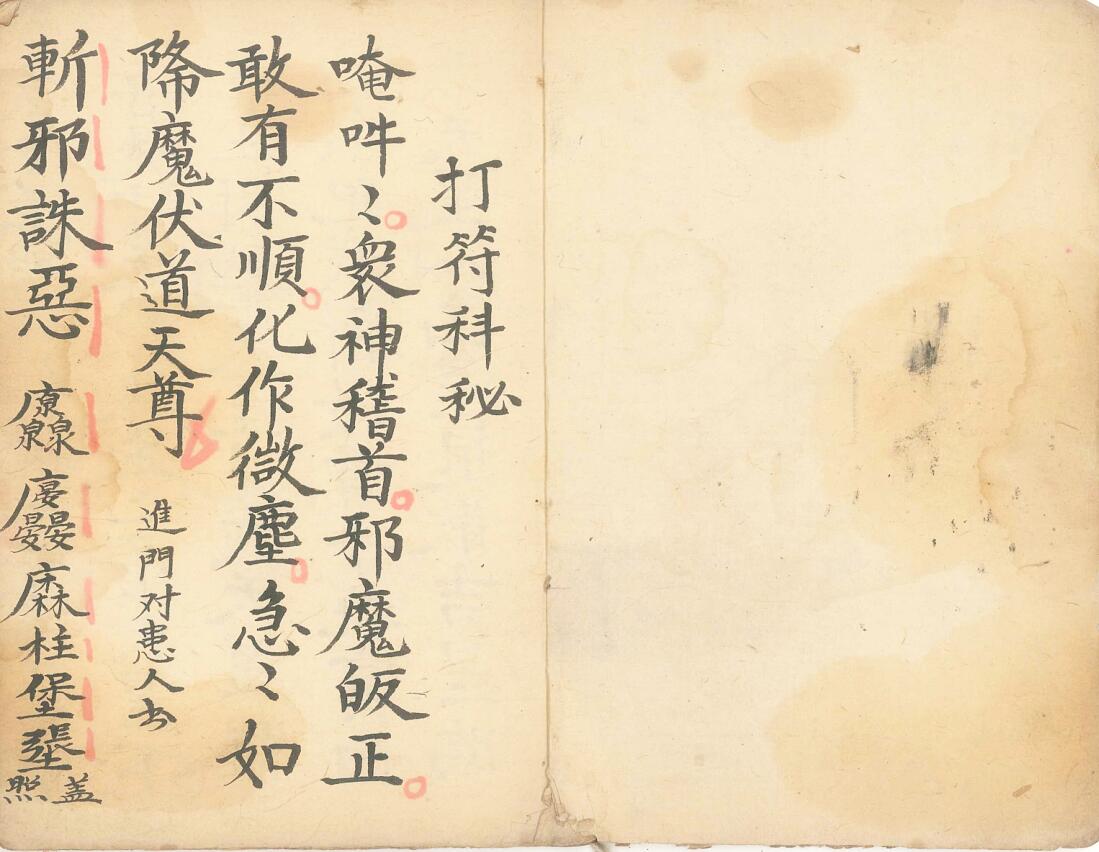 打符科秘
唵吽〻衆神稽首邪魔皈正
敢有不順化作微塵急〻如
降魔伏道天尊 進門对患人书
斬邪誅惡 柱堡 照盖